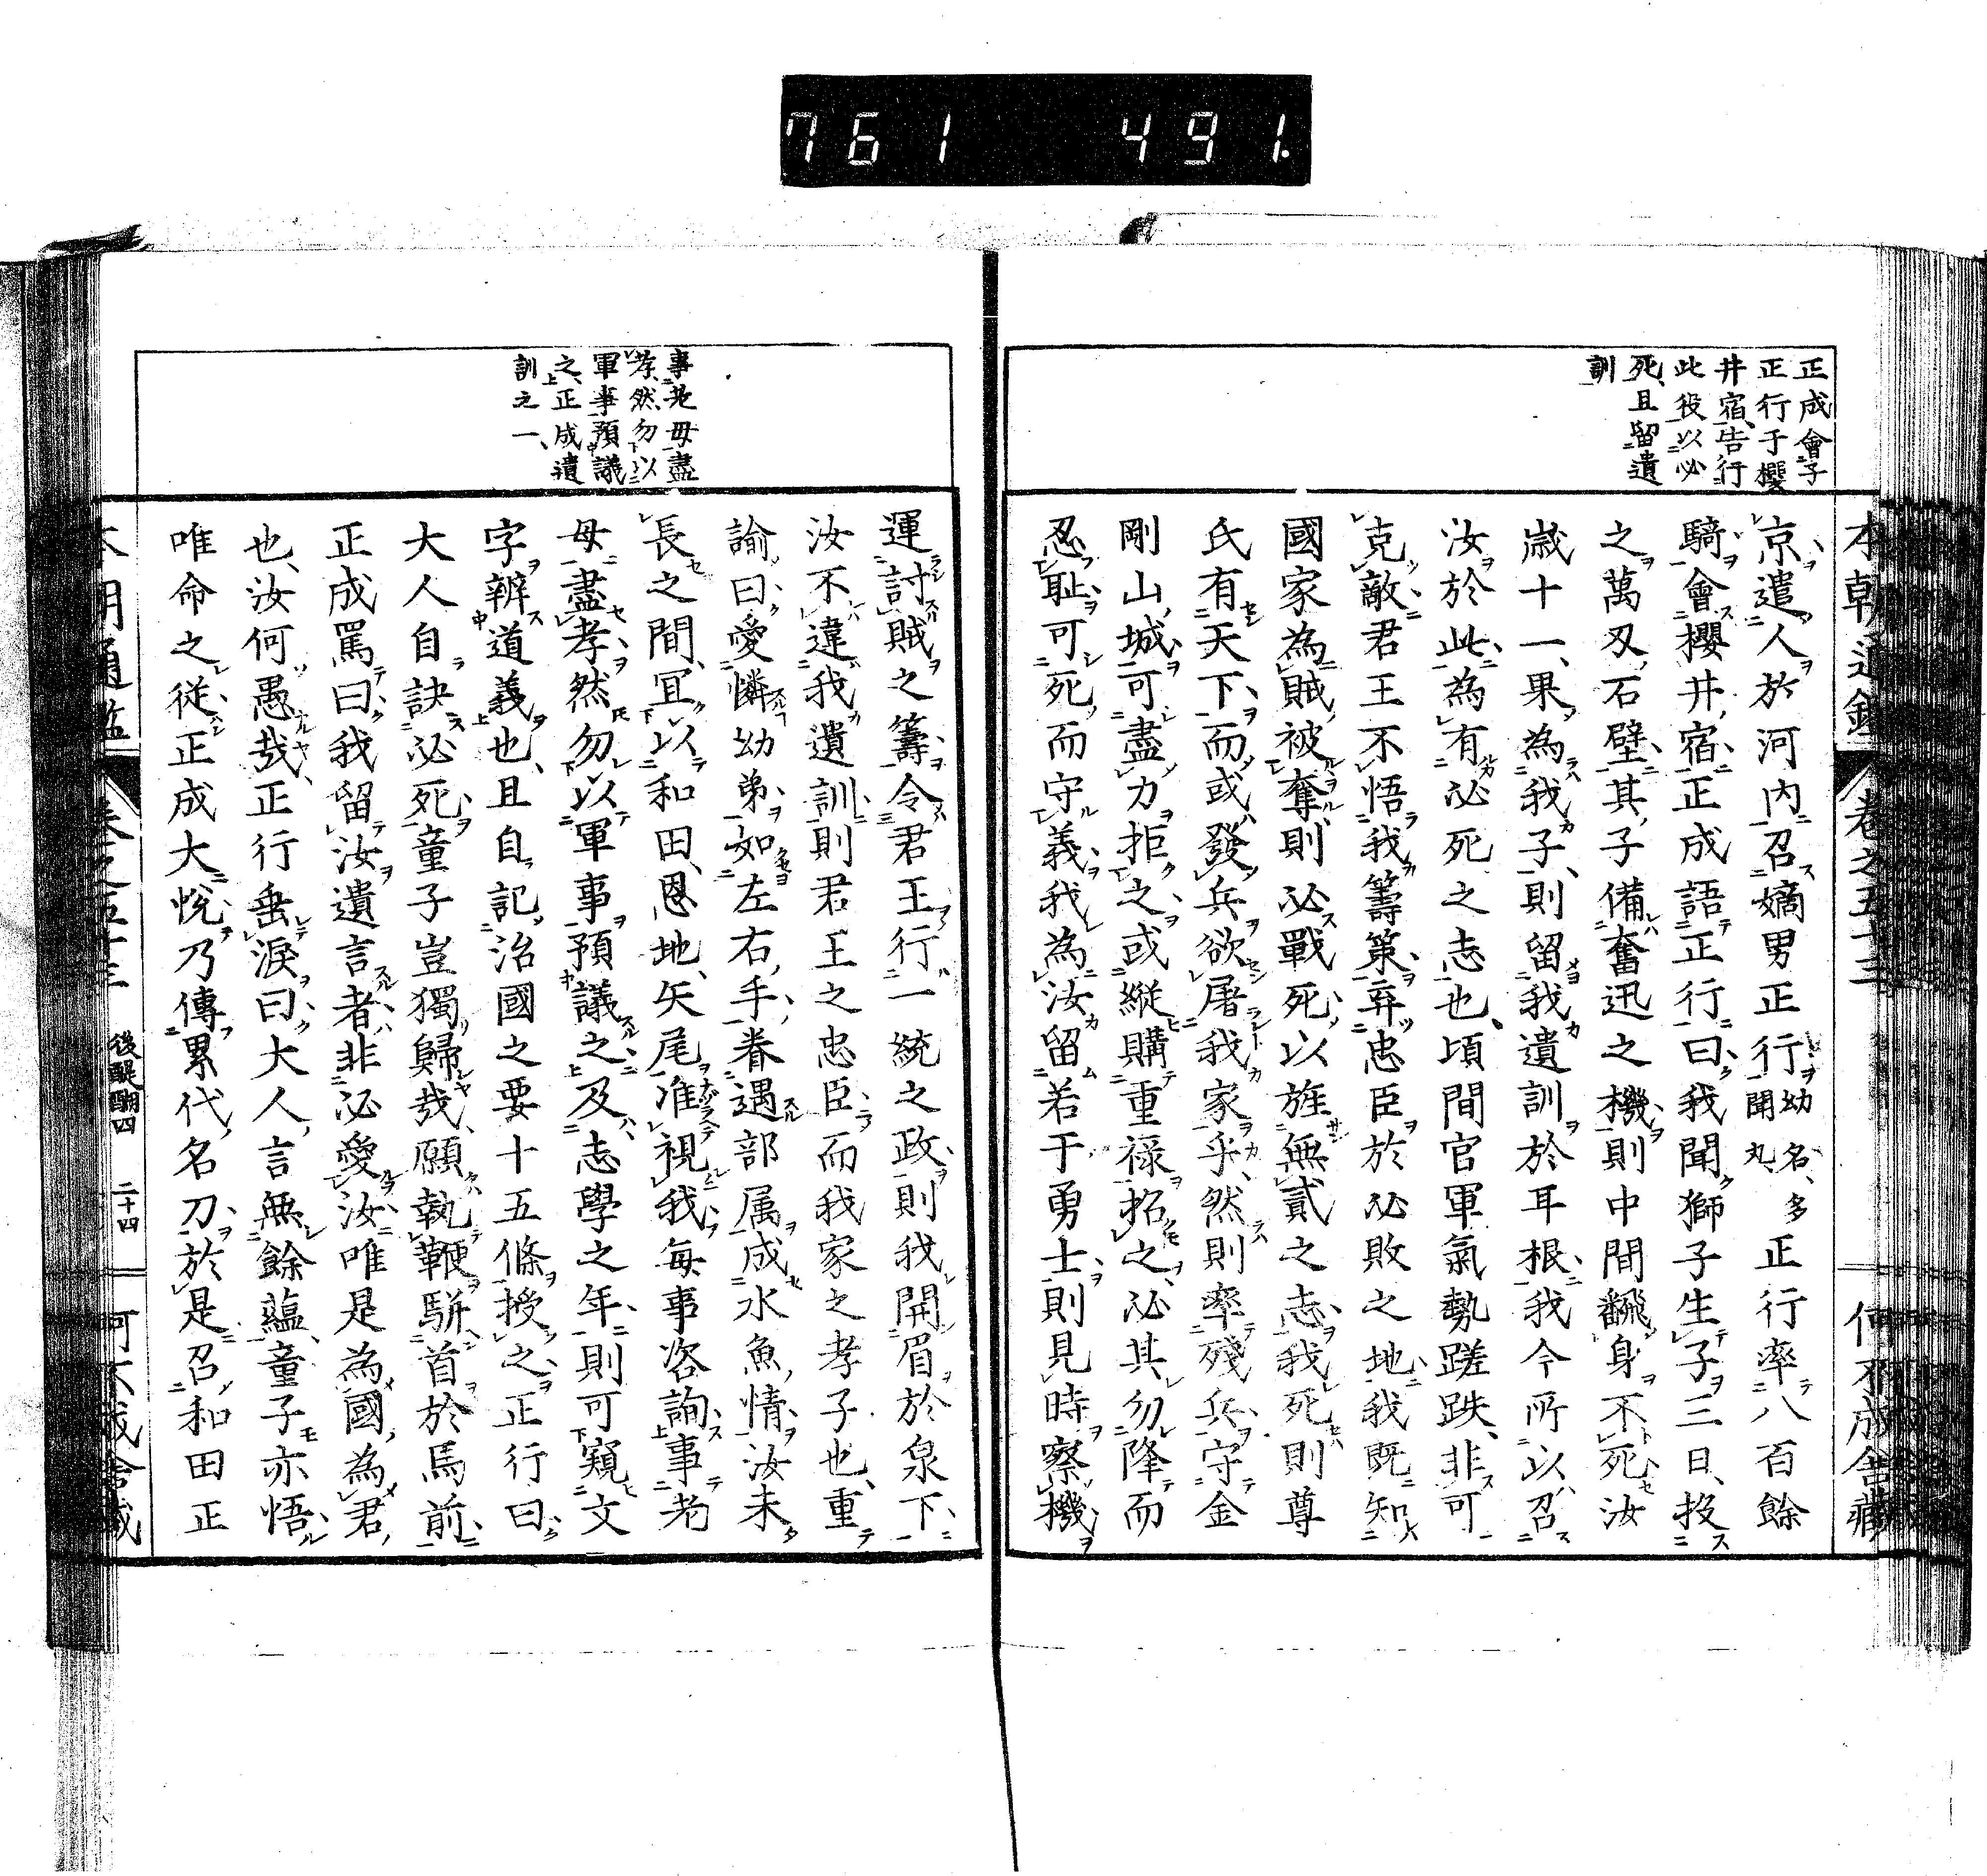 761 491.
正成會子
正行于櫻
井宿告行
此役以必
死、且留遺
訓
本朝通鑑 卷之五十三 何不成舍藏
京遣人於河内召嫡男正行幼名、多聞丸、正行率八百餘
騎會櫻井宿正成語正行曰我聞獅子生子三日、投
之萬刄石壁其子備奮迅之機則中間飜身不死汝
歳十一、果為我子、則留我遺訓於耳根我今所以召
汝於此為有必死之志也、頃間官軍氣勢蹉跌、非可
克敵君王不悟我籌策弃忠臣於必敗之地我既知
國家為賊被奪則必戰死以旌無貳之志我死則尊
氏有天下而或發兵欲屠我家乎、然則率殘兵守金
剛山城可盡力拒之或縱購重禄招之、必其勿降而
忍恥可死而守義我為汝留若干勇士則見時察機
事老母盡
孝、然勿以
軍事預議
之、正成遺
訓之一、
運討賊之籌令君王行一統之政則我開眉於泉下
汝不違我遺訓則君王之忠臣而我家之孝子也、重
諭曰愛憐幼弟如左右手眷遇部属成水魚情汝未
長之間、冝以和田、恩地、矢尾准視我毎事咨詢事老
母盡孝然勿以軍事預議之及志學之年則可窺文
字辨道義也、且自記治國之要十五條授之正行曰
大人自訣必死童子豈獨歸哉、願執鞭駢首於馬前
正成罵曰我留汝遺言者非必愛汝唯是為國為君
也、汝何愚哉、正行垂淚曰大人言無餘蘊、童子亦悟
唯命之從正成大悅乃傳累代名刀於是召和田正
本朝通鑑 卷之五十三 後醍醐四 二十四 何不成舍藏